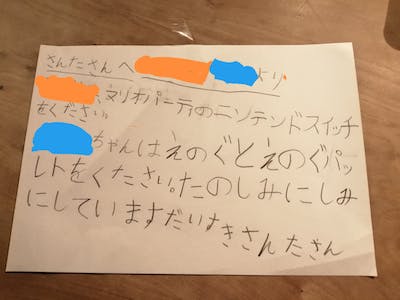 さんたさんへ より
マリオパーティのニンテンドスイッチ
をください
ちゃんはえのぐとえのぐパッ
レトをください。たのしみにしみ
にしていますだいすきさんたさん